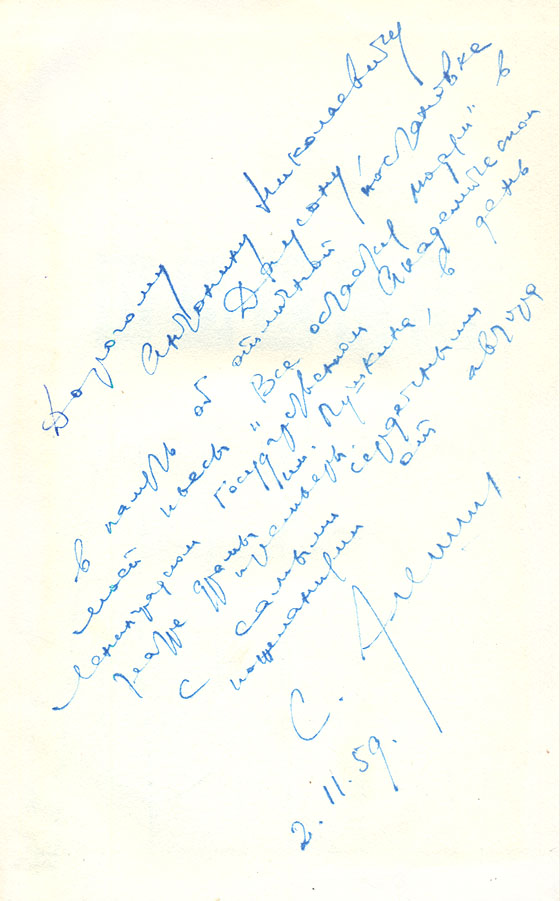 Дорогому
Антонину Николаевичу
Даусону
в память об отличной постановке
моей пьесы "Все остается людям" в
Ленинградском Государственном Академическом
театре драмы им. Пушкина, в день
премьеры.
С самыми сердечными
пожеланиями от автора
С. Алешин
2.11.59.